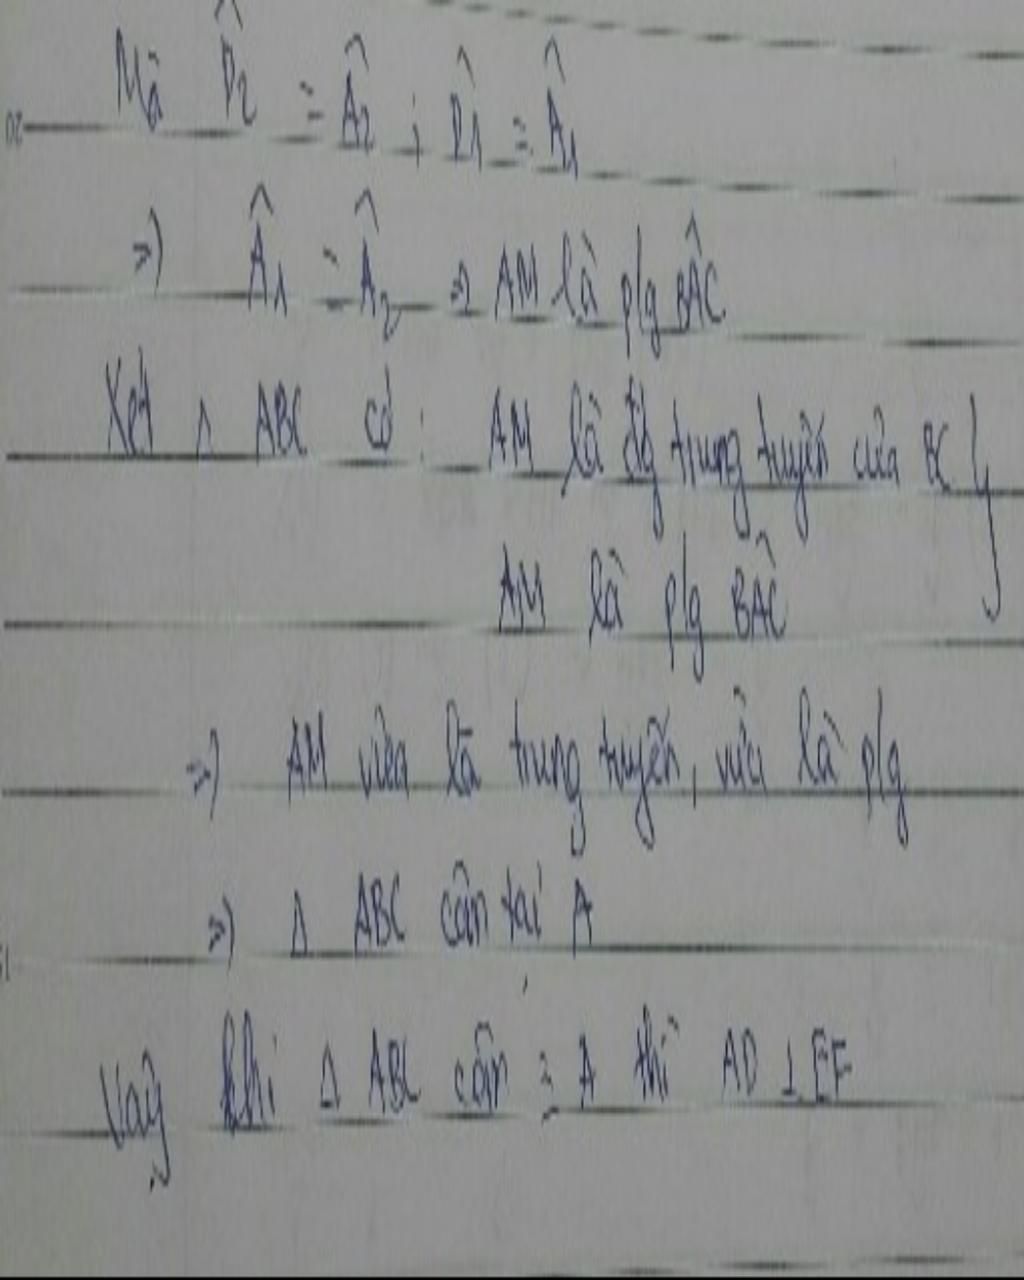 Mà D̂₂ = Â₂ ; D̂₁ = Â₁
=> Â₁ = Â₂ => AM là p/g BÂC
Xét Δ ABC có : AM là đg trung tuyến của BC }
AM là p/g BÂC
=> AM vừa là trung tuyến, vừa là p/g
=> Δ ABC cân tại A
Vậy khi Δ ABC cân = A thì AD ⊥ EF